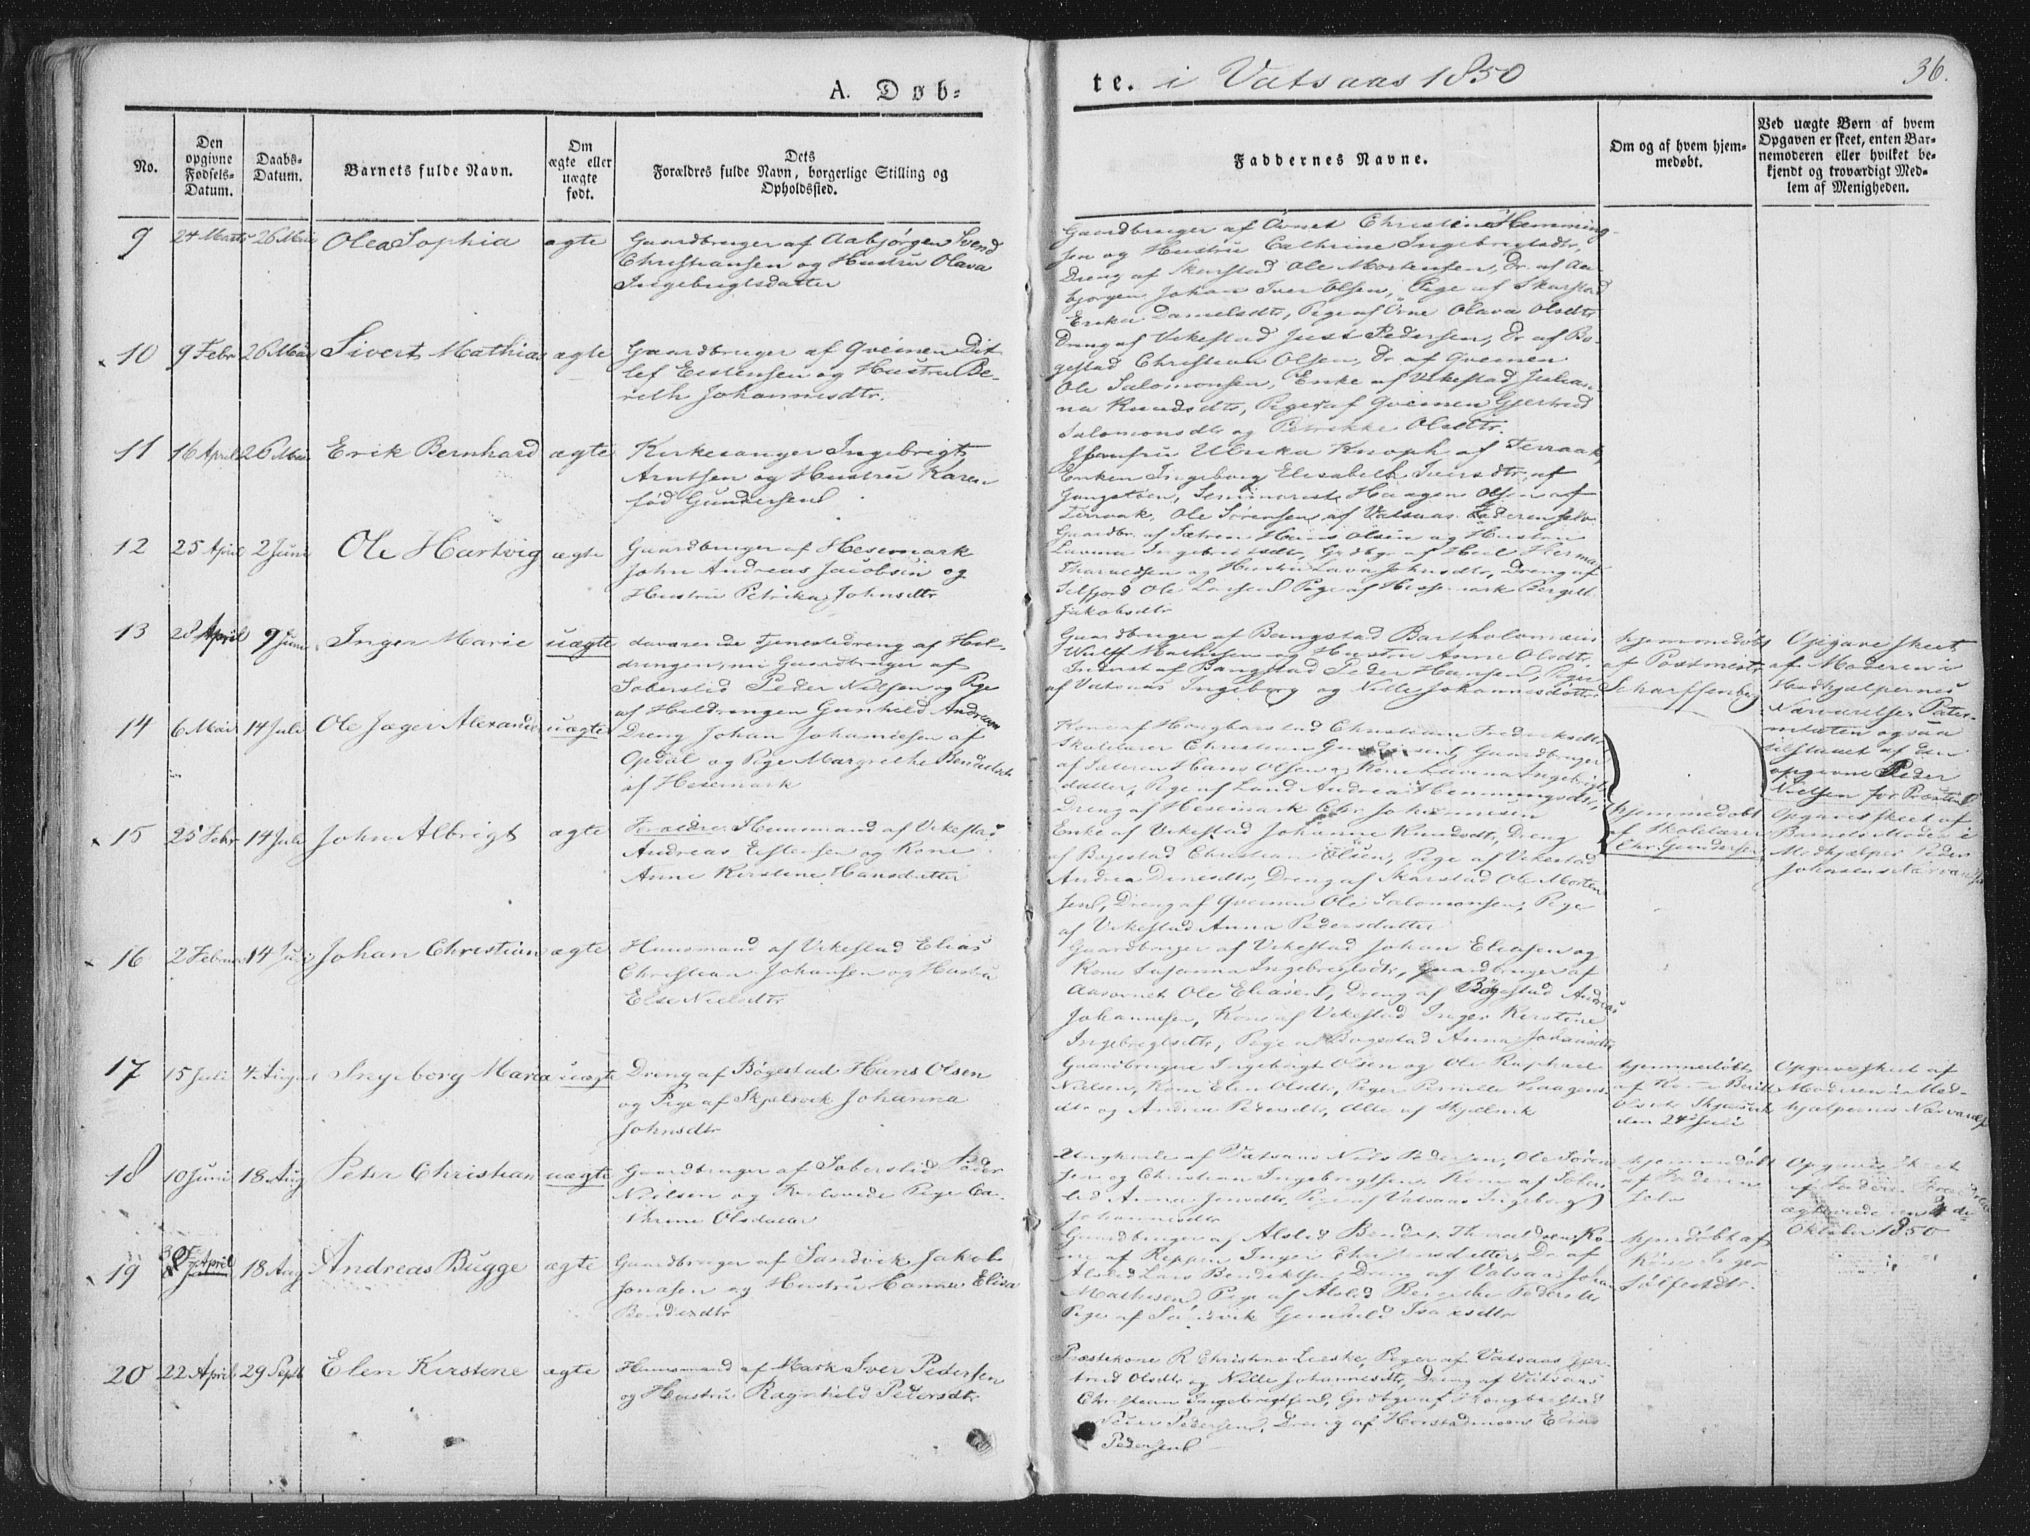 A. Døb=
te. i Vatsaas 1850
36.
No.
Den opgivne Fødsels-Datum.
Daabs-Datum.
Barnets fulde Navn.
Om ægte eller uægte født.
Dets Forældres fulde Navn, borgerlige Stilling og Opholdssted.
Faddernes Navne.
Om og af hvem hjem-
medøbt.
Ved uægte Børn af hvem
Opgaven er skeet, enten Bar-
nemoderen eller hvilket be-
kjendt og troværdigt Med-
lem af Menigheden.
9 24 Marts 26 Mai Olea Sophia ægte
Gaardbruger af Aabjørgen Svend
Christiansen og Hustru Olava
Ingebrigtsdatter
Gaardbruger af Christian Hemming-
sen og Hustru Cathrine Ingebrigtsdtr,
Dreng af Skarstad Ole Mortensen, Dr. af Aa-
bjørgen Johan Iver Olsen, Pige af Skarstad
Erika Danielsdtr, Pige af Olava Olsdtr
10 9 Febr 26 Mai Sivert Mathias ægte
Gaardbruger af Qveinen Dit
lef Eistensen og Hustru Be-
reth Johannesdtr.
Dreng af Vikestad Just Pedersen, Dr. af Bø-
gestad Christian Olsen, Dr. af Qveinen
Ole Salomonsen, Enke af Vikestad Julian-
na Knudsdtr, Piger af Qveinen Gjertrud
Salomonsdtr og Petrikke Olsdtr.
11 16 April 26 Mai Erik Bernhard ægte
Kirkesanger Ingebrigt
Arntsen og Hustru Karen
fød Gundersen
Jomfru Ulrika Knoph af Terraak,
Enken Ingeborg Elisabeth Iversdtr af
Seminarist Haagen Olsen af
Terraak, Ole Sørensen af Vatsaas Faderen selv
12 25 April 2 Juni Ole Hartvig ægte
Gaardbruger af Hesemark
John Andreas Jacobsen og
Hustru Petrika Johnsdtr
Gaardbr. af Sæteren Hans Olsen og Hustru
Lavina Ingebrigtsdtr, Grdbgr af
Tharaldsen og Hustru Lava Johnsdtr, Dreng af
Ole Larsen Pige af Hessemark Bergitt
Jakobsdtr
13 28 April 9 Juni Inger Marie uægte
daværende Tjenestedreng af Hel-
drengen, nu Gaardbruger af
Soberstid Peder Nielsen og Pige
af Heldrengen Gunhild Andreasdtr
Gaardbruger af Bangstad Bartholomæus
Wulff Mathisen og Hustru Anne Olsdtr
af Bangstad Peder Hansen, Piger
af Vatsaas Ingeborg og Nille Johannesdøtre
hjemmedøbt
af Postmester
Scharffenberg
Opgave skeet
af Moderen i
Medhjælpernes
Nærværelse. Pater-
niteten ogsaa
tilstaaet af den
opgivne Peder
Nielsen for Præsten
14 6 Mai 14 Juli Ole Jæger Alexander uægte
Dreng Johan Johannesen af
Opdal og Pige Margrethe
af Hesemark
Kone af Hongbarstad Christiane Frederiksdtr
Skolelærer Christian Gundersen, Gaardbruger
af Sæteren Hans Olsen og Kone Lavina Ingebrigts
datter, Pige af Lund Andrea Hemmingsdtr,
Dreng af Hesemark Chr. Johannesen
hjemmedøbt
af Skolelærer
Chr. Gundersen
Opgave skeet af
Barnets Moder i
Medhjælper Peder
Johnsens Nærværelse
15 25 Febr 14 Juli John Albrigt ægte
Forældre Huusmand af Vikestad
Andreas Eistensen og Kone
Anne Kirstine Hansdatter
Enke af Vikestad Johanne Knudsdtr, Dreng
af Bøgestad Christian Olsen, Pige af Vikestad
Andrea Dinesdtr, Dreng af Skarstad Ole Morten
sen, Dreng af Qveinen Ole Salomonsen, Pige
af Vikestad Anna Pedersdatter
16 2 Februar 14 Juli Johan Christian ægte
Huusmand af Vikestad Elias
Christian Johansen og Hustru
Else Nielsdtr
Gaardbruger af Vikestad Johan Eliasen og
Kone Susanna Ingebrigtsdtr, Gaardbruger af
Ole Eliasen, Dreng af Bøgestad Andreas
Johannesen, Kone af Vikestad Inger Kirstine
Ingebrigtsdtr, Pige af Bøgestad Anna Johansdtr
17 15 Juli 4 August Ingeborg Maria uægte
Dreng af Bøgestad Hans Olsen
og Pige af Skjelsvik Johanna
Johnsdtr
Gaardbrugere Ingebrigt Olsen og Ole Raphael
Nilsen, Kone Elen Olsdtr, Piger Pernille Haagens
dtr og Andrea Pedersdtr, Alle af Skjelsvik
hjemmedøbt
af Kone Berith
Olsdtr Skjelsvik
den 24de Juli
Opgave skeet af
Moderen i Med-
hjælpernes Nærværelse
18 10 Juni 18 Aug Peter Christian uægte
Gaardbruger af Soberstid Peder
Neilsen og Pige Ca-
thrine Olsdatter
Ungkarle af Vatsaas Nils Pedersen, Ole Søren
sen og Christian Ingebrigtsen, Kone af Sobers
tid Anna Jensdtr, Pige af Vatsaas Ingeborg
Johannesdtr
hjemmedøbt
af Faderen
selv
Opgave skeet
af Faderen
ægteviede den
Oktober 1850
19 April 18 Aug Andreas Bugge ægte
Gaardbruger af Sandvik Jakob
Jonasen og Hustru Hanna Elisa
Bendixdtr
Gaardbruger af Alslid Bendix Tharaldsen, Ko-
ne af Reppen Inger Christensdatter, Dr. af
Alslid Lars Bendiktsen, Dreng af Vatsaas Johan
Mathisen, Pige af Alslid Pedersdtr
Pige af Sandvik Gunhild Isaksdtr
hjemdøbt af
Kone Inger
20 22 April 29 Sept Elen Kirstine ægte
Huusmand af Mark Iver Pedersen
og Hustru Ragnhild Petersdtr
Præstekone R. Christine Lieske, Piger af Vatsaas Gjer-
trud Olsdtr og Nille Johannesdtr, Dreng af Vatsaas
Christian Ingebrigtsen, Grdbgr af Hongbarstad
Peder Pedersen, Dreng af Horstadmoens Elias
Pedersen